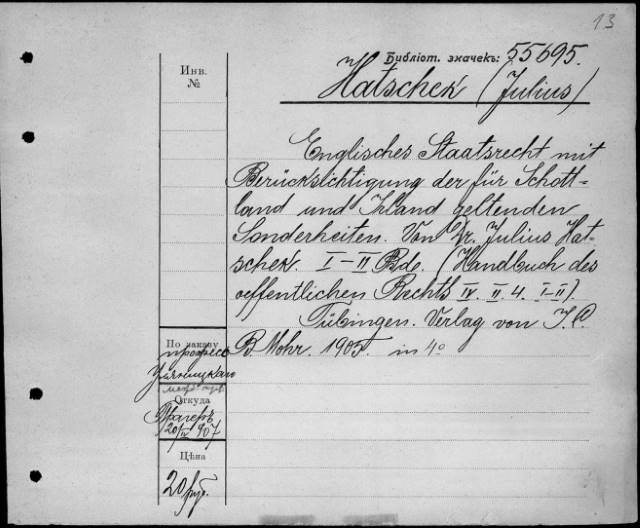 13
Библіот. значекъ: 55695.
Инв.
№
Hatschek (Julius)
Englisches Staatsrecht mit
Berücksichtigung der für Schott-
land und Irland geltenden
Sonderheiten. Von Dr. Julius Hat-
schek. I-II Bde. (Handbuch des
oeffentlichen Rechts IV. II. 4. I-II).
Tübingen. Verlag von J. C.
B. Mohr. 1905. in 4°
По заказу
професс
Уляницкаго
Откуда
20/IV 907
Цѣна
20 руб.